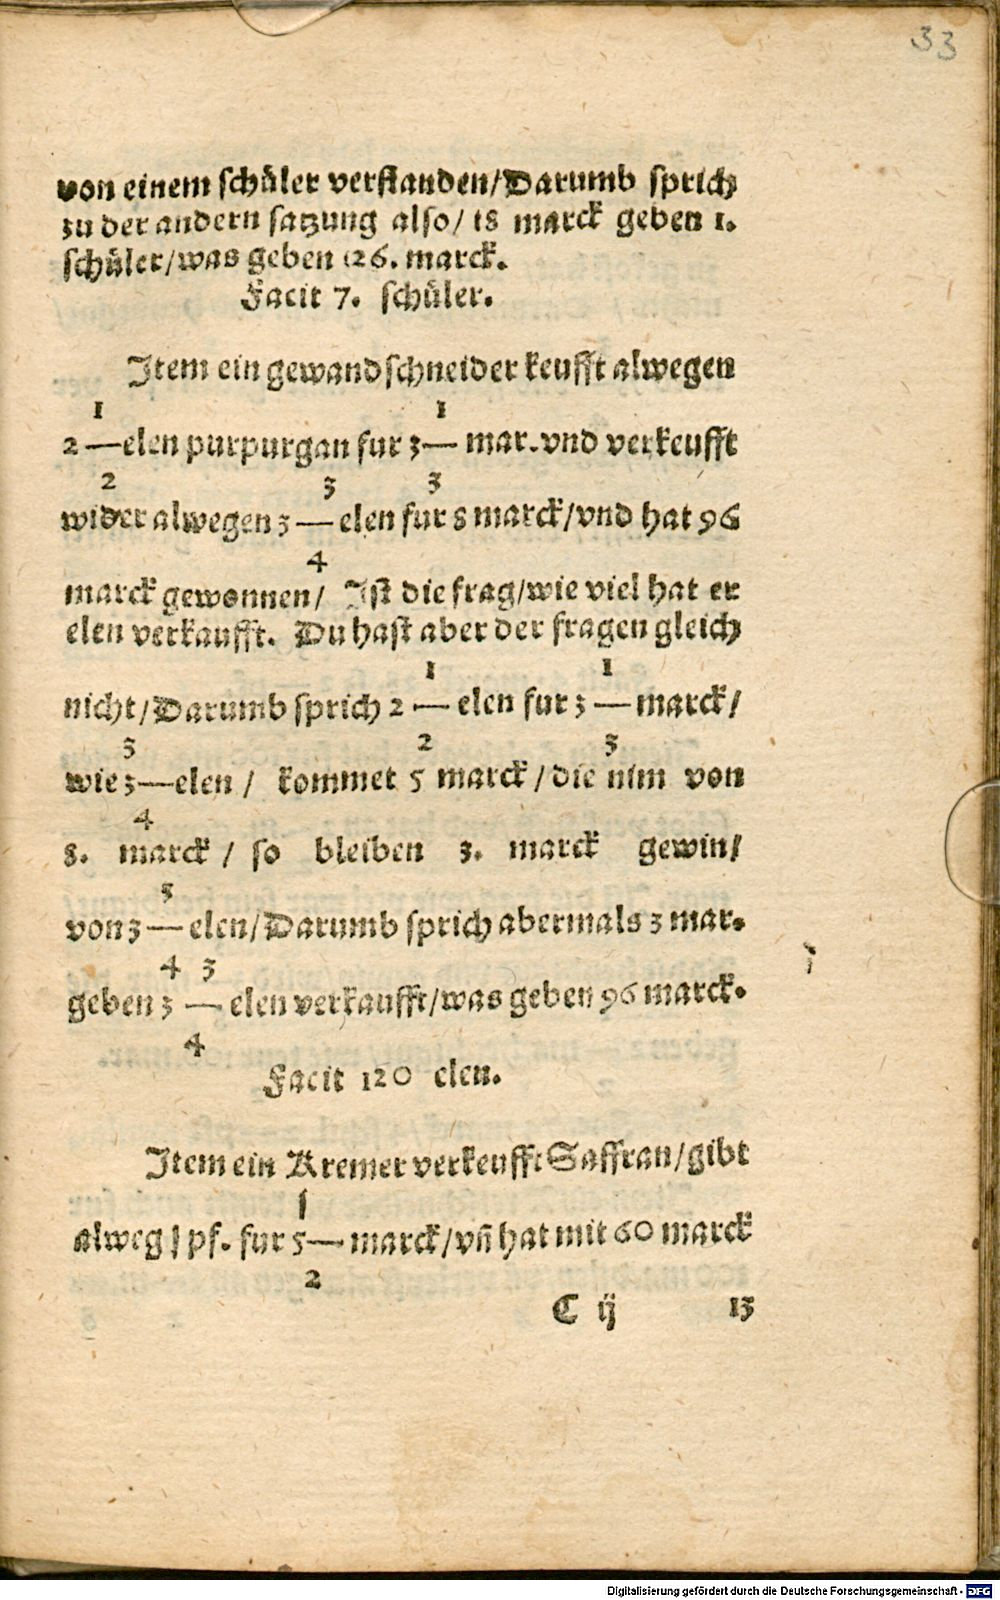 33
von einem schüler verstanden/Darumb sprich
zu der andern satzung also/ 18 marck geben 1.
schüler/was geben 126. marck.
Facit 7. schüler.
Item ein gewandschneider keufft alwegen
2 1/2 elen purpurgan fur 3 1/3 mar.vnd verkeufft
wider alwegen 3 3/4 elen fur 8 marck/vnd hat 96
marck gewonnen/ Ist die frag/wie viel hat er
elen verkaufft. Du hast aber der fragen gleich
nicht/Darumb sprich 2 1/2 elen fur 3 1/3 marck/
wie 3 3/4 elen/ kommet 5 marck/die nim von
8. marck/ so bleiben 3. marck gewin/
von 3 3/4 elen/Darumb sprich abermals 3 mar.
geben 3 3/4 elen verkaufft/was geben 96 marck.
Facit 120 elen.
Item ein Kremer verkeufft Saffran/gibt
alweg 1 pf. fur 5 1/2 marck/vñ hat mit 60 marck
C ij 13
Digitalisierung gefördert durch die Deutsche Forschungsgemeinschaft - DFG